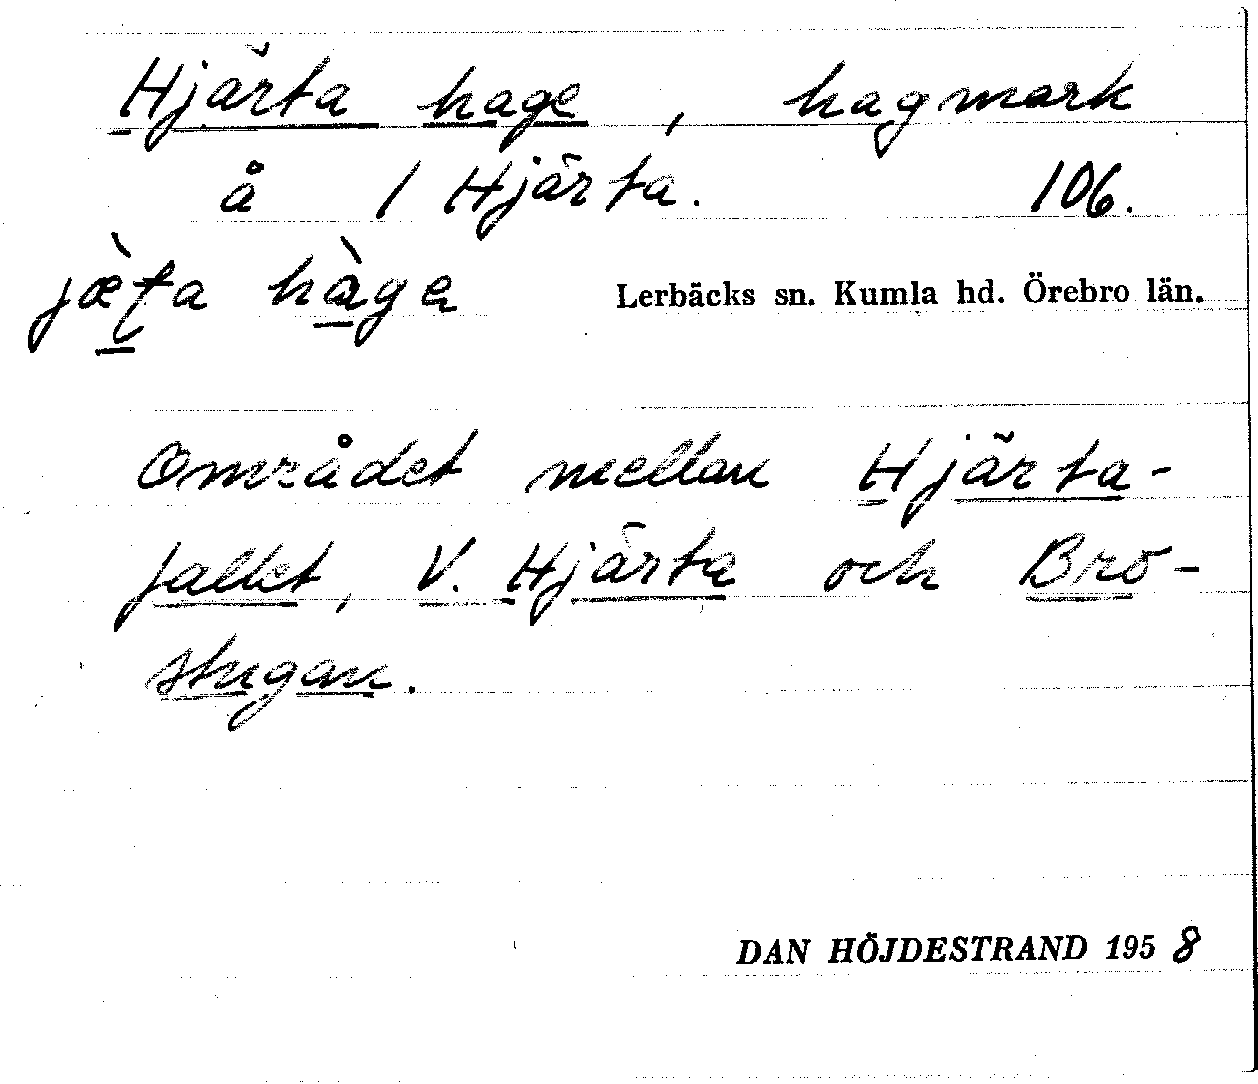 Hjärta hage, hagmark
å 1 Hjärta. 106.
jæ̀ʈa hàga Lerbäcks sn. Kumla hd. Örebro län.
Området mellan Hjärta-
fallet, V. Hjärta och Bro-
stugan.
DAN HÖJDESTRAND 1958